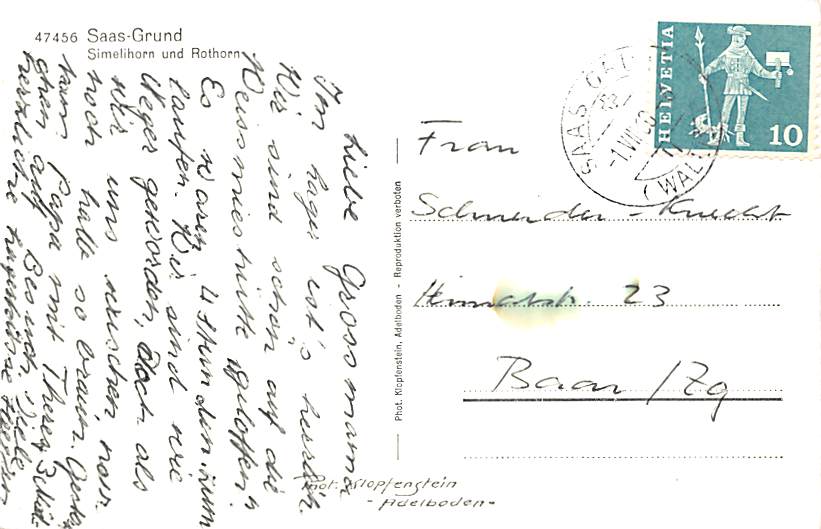 47456 Saas-Grund
Simelihorn und Rothorn
Liebe Grossmama
Im lager ist's herrlich.
Wir sind schon auf die
Weissmieshütte geloffen.
Es waren 4 Stunden zum
laufen. Wir sind wie
Neger geworden, doch als
wir uns wuschen, nur
noch halb so braun. Gestern
kam Papa mit Theres
auf Besuch. Viele
herzliche
Phot. Klopfenstein, Adelboden - Reproduktion verboten
Phot. Klopfenstein
- Adelboden -
HELVETIA
10
SAAS
Frau
Schneider-Knecht
Heimatstr. 23
Baar / Zg